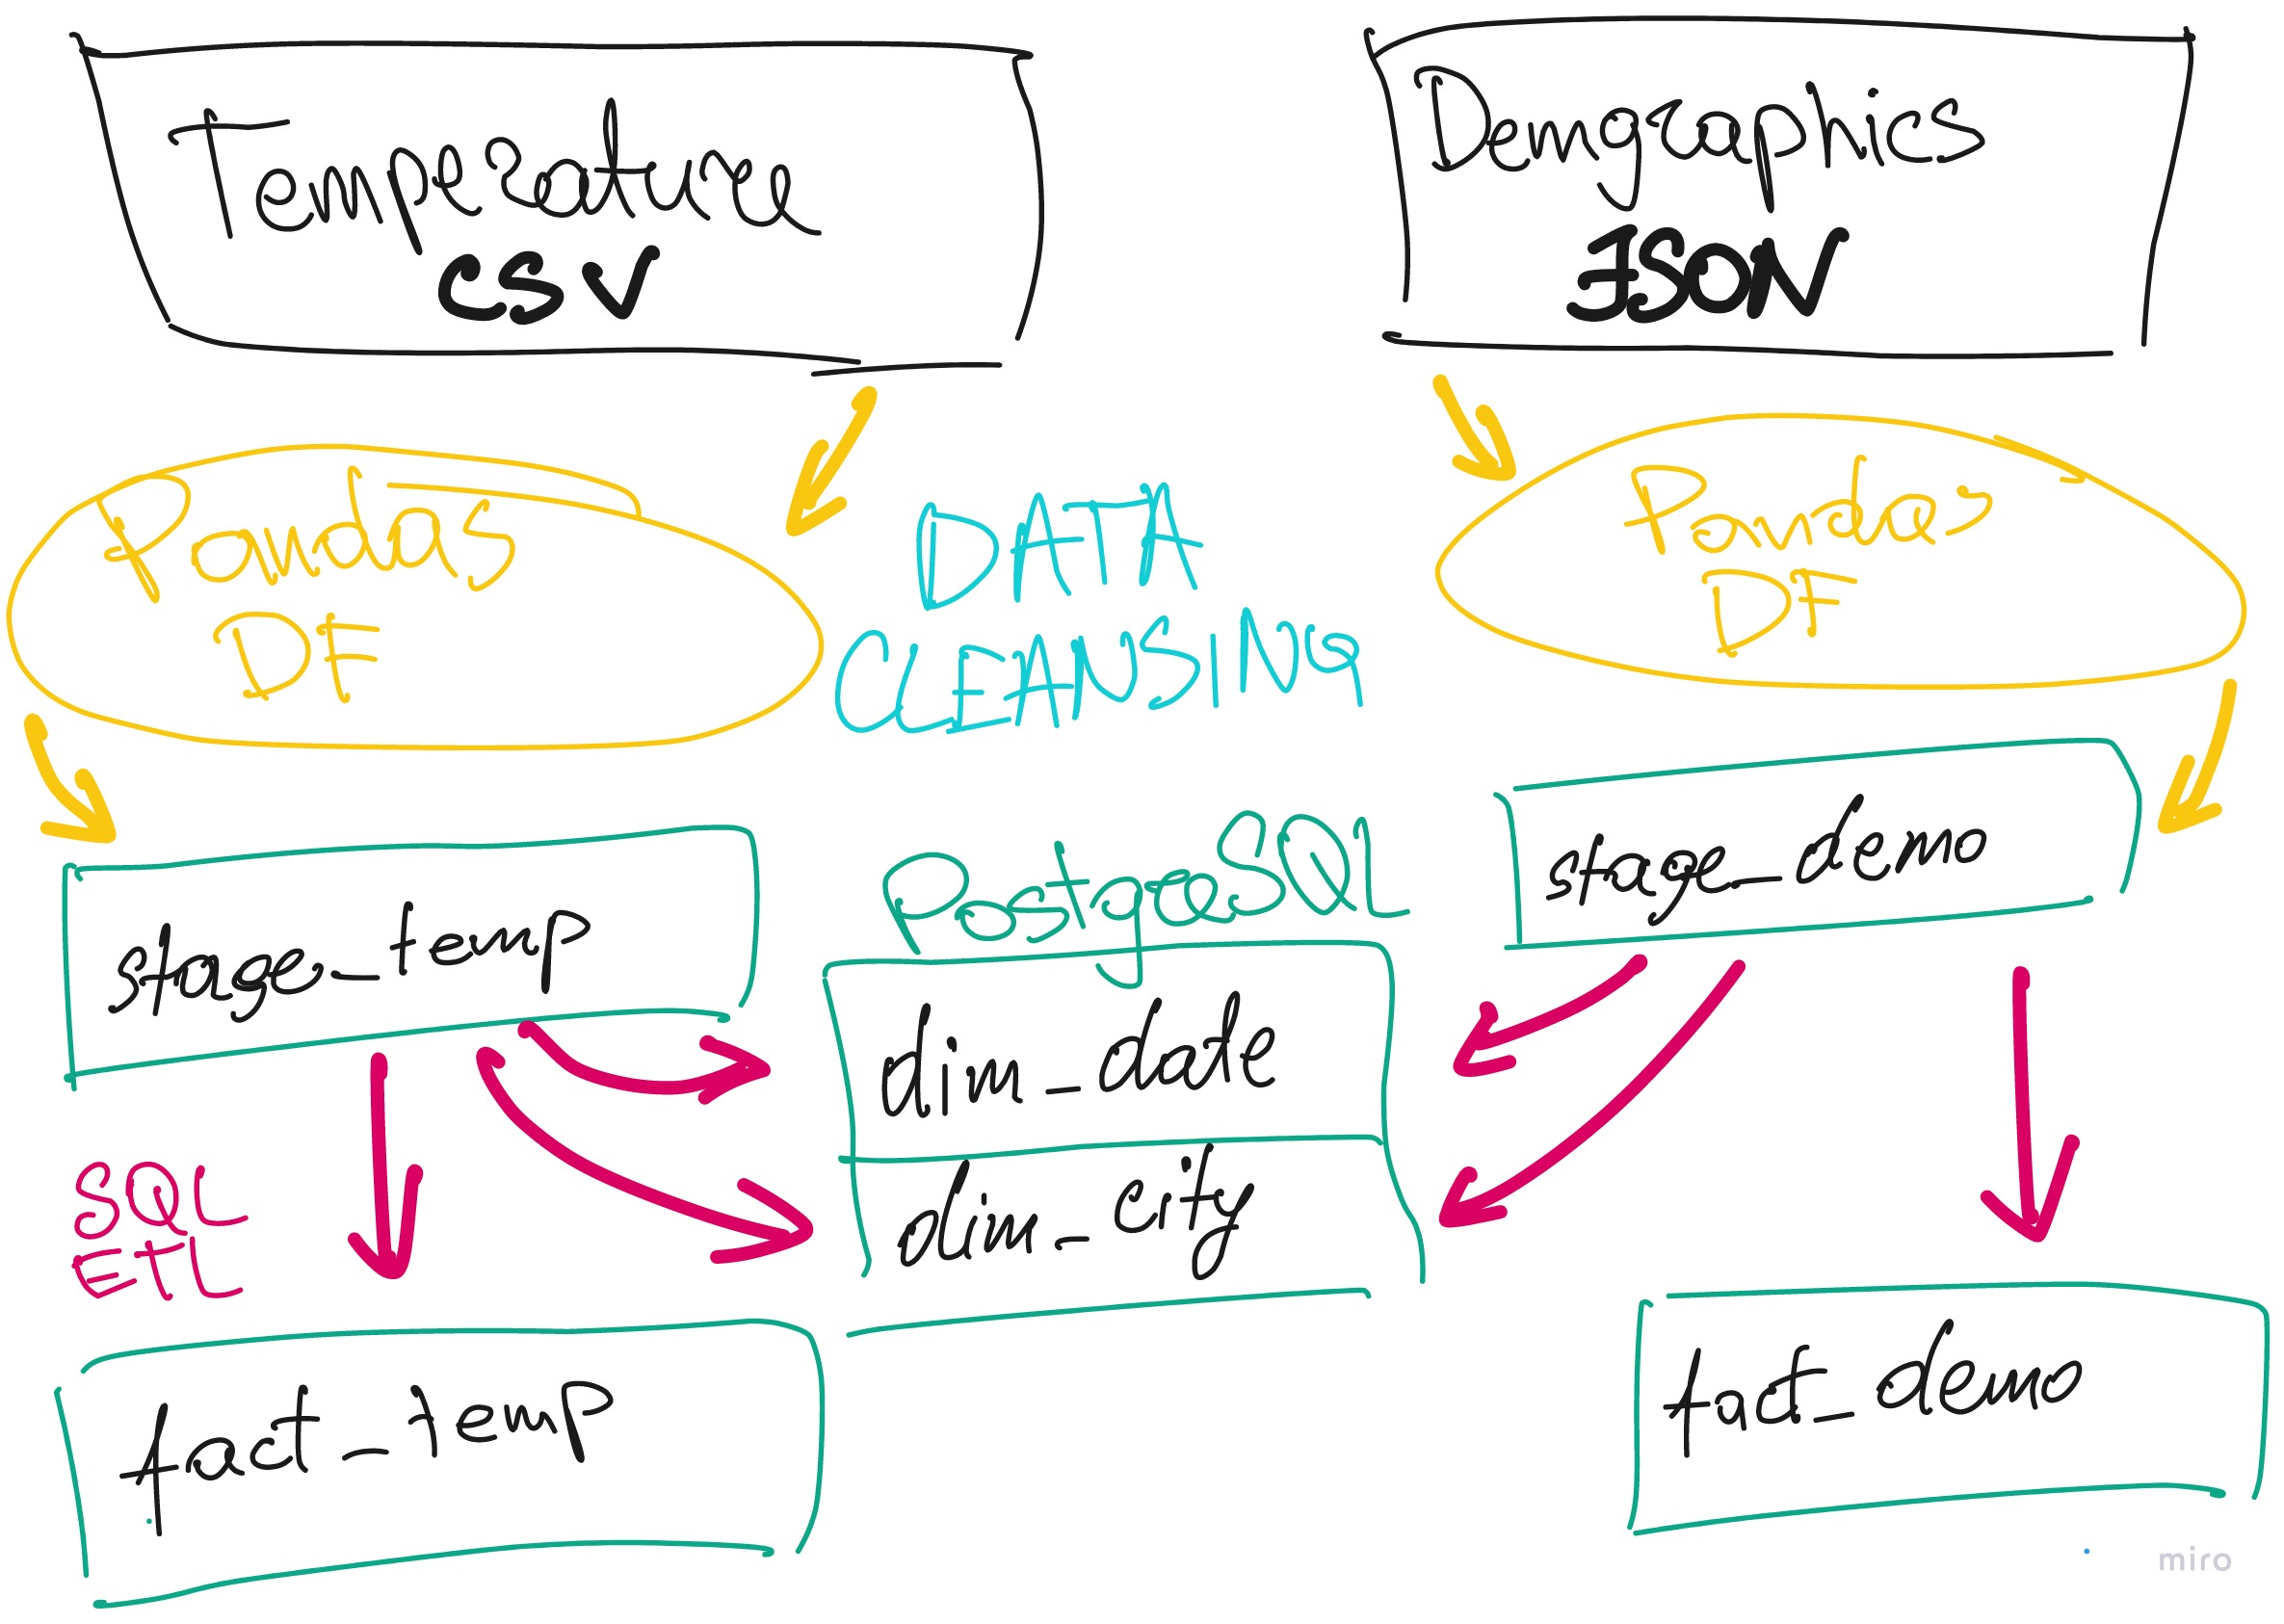 Temperature
CSV
Demographics
JSON
Pandas
DF
DATA
CLEANSING
Pandas
DF
stage_temp
PostgreSQL
stage_demo
dim_date
dim_city
SQL
ETL
fact_temp
fact_demo
miro